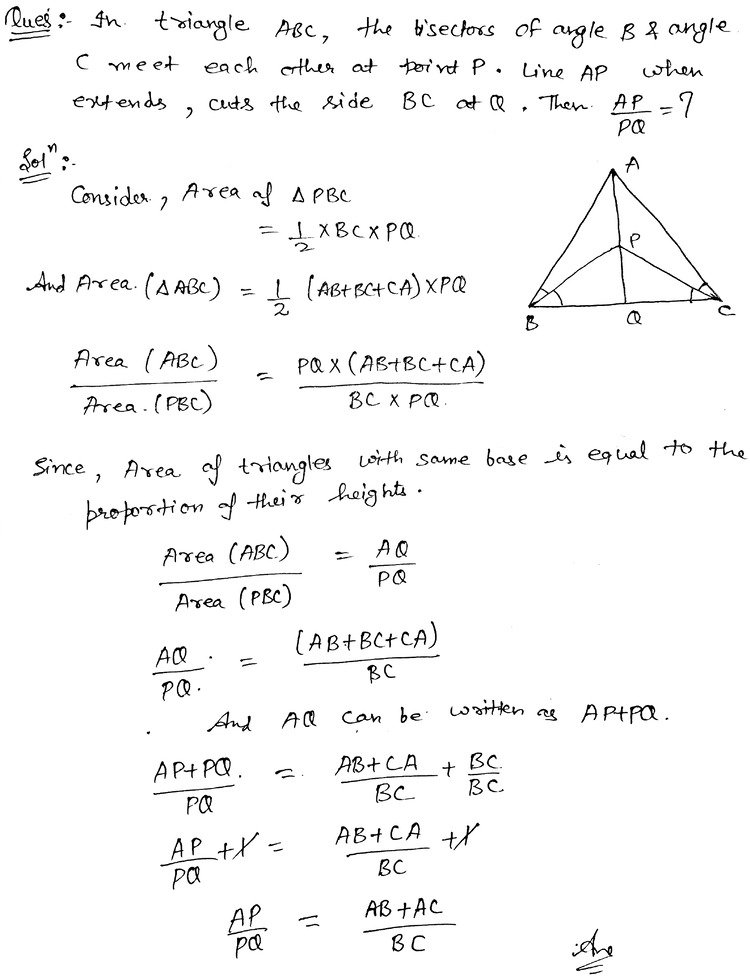 Ques:- In triangle ABC, the bisectors of angle B & angle
C meet each other at point P. Line AP when
extends, cuts the side BC at Q. Then AP/PQ = ?
Solⁿ:-
Consider, Area of Δ PBC
= 1/2 × BC × PQ.
And Area. (Δ ABC) = 1/2 (AB+BC+CA) × PQ
A
P
B
Q
C
Area (ABC)/Area. (PBC) = PQ × (AB+BC+CA)/BC × PQ.
Since, Area of triangles with same base is equal to the
proportion of their heights.
Area (ABC)/Area (PBC) = AQ/PQ
AQ/PQ. = (AB+BC+CA)/BC
And AQ can be written as AP+PQ.
AP+PQ./PQ = AB+CA/BC + BC/BC
AP/PQ + 1 = AB+CA/BC + 1
AP/PQ = AB+AC/BC
Ans